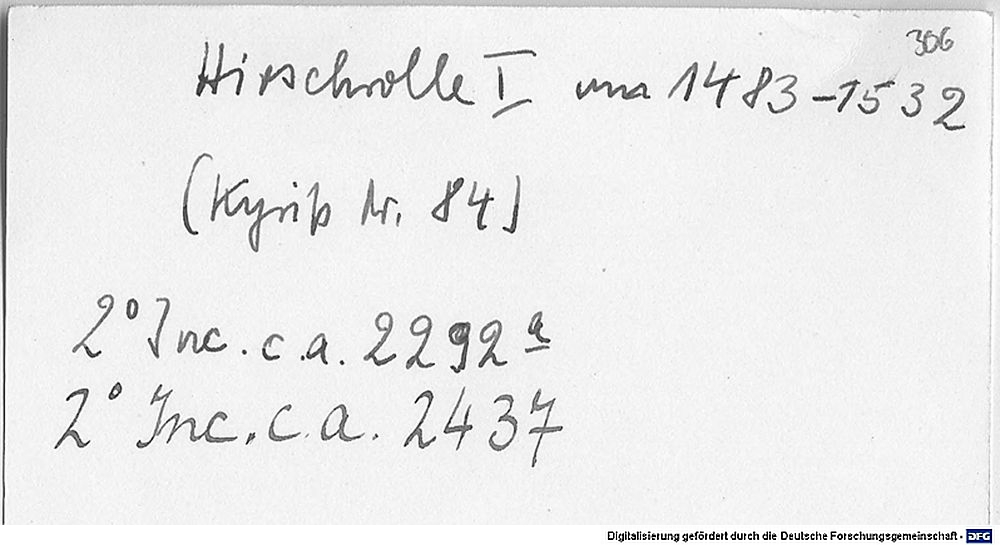 306
Hirschrolle I um 1483-1532
(Kyriß Nr. 84)
2° Inc. c.a. 2292 a
2° Inc. c.a. 2437
Digitalisierung gefördert durch die Deutsche Forschungsgemeinschaft - DFG